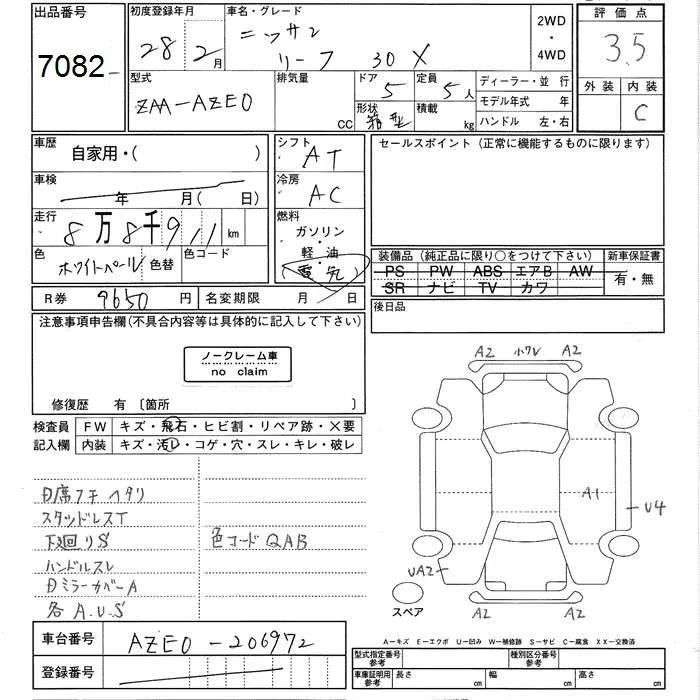 出品番号
7082
初度登録年月
28 2月
車名・グレード
ニッサン
リーフ 30 X
2WD
・
4WD
評価点
3.5
外装 内装
C
型式
ZAA-AZE0
排気量
CC
ドア
5
定員
5人
形状
箱型
積載
kg
ディーラー・並行
モデル年式 年
ハンドル 左・右
車歴
自家用・( )
車検
年 月( 日)
走行
8万8千911km
色
ホワイトパール
色替
色コード
シフト
AT
冷房
AC
燃料
ガソリン
・
軽・油
(電気)
セールスポイント(正常に機能するものに限ります)
装備品(純正品に限り○をつけて下さい)
PS PW ABS エアB AW
SR ナビ TV カワ
新車保証書
有・無
R券 9650円
名変期限 月 日
後日品
注意事項申告欄(不具合内容等は具体的に記入して下さい)
ノークレーム車
no claim
修復歴 有 〔箇所 〕
検査員
記入欄
FW キズ・飛石・ヒビ割・リペア跡・×要
内装 キズ・汚レ・コゲ・穴・スレ・キレ・破レ
D席フチヘタリ
スタッドレスT
下廻りS
ハンドルスレ
DミラーカバーA
各A.U.S
色コードQAB
A2 小ワレ A2
A1
U4
UA2
スペア
A2 A2
車台番号
AZE0-206972
登録番号
A-キズ E-エクボ U-凹み W-補修跡 S-サビ C-腐食 XX-交換済
型式指定番号
参考
種別区分番号
参考
車庫証明用
参考
長さ cm 幅 cm 高さ cm